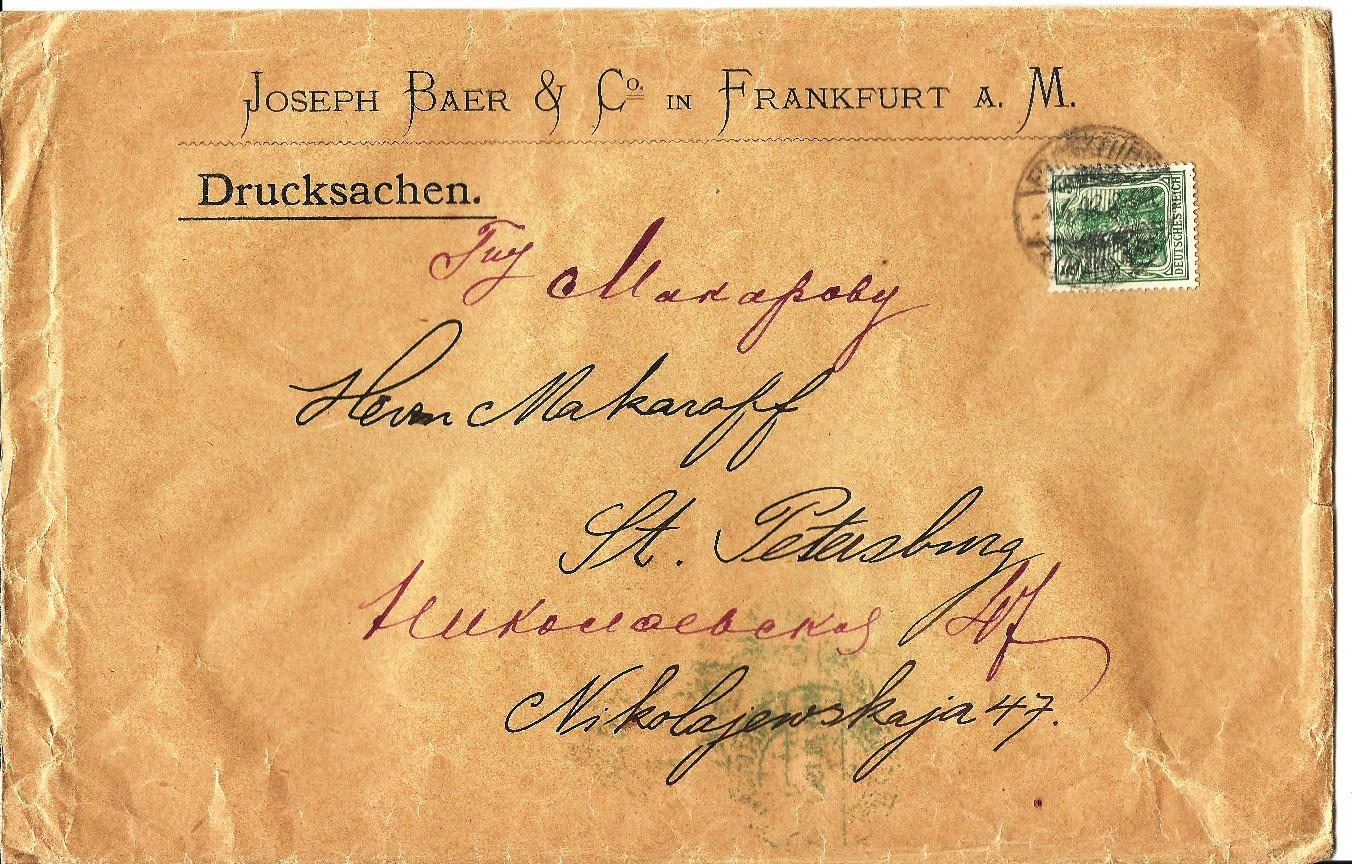 JOSEPH BAER & Co. IN FRANKFURT A. M.
Drucksachen.
DEUTSCHES REICH
Гну Макарову
Herrn Makaroff
St. Petersburg
Николаевская 47
Nikolajewskaja 47.